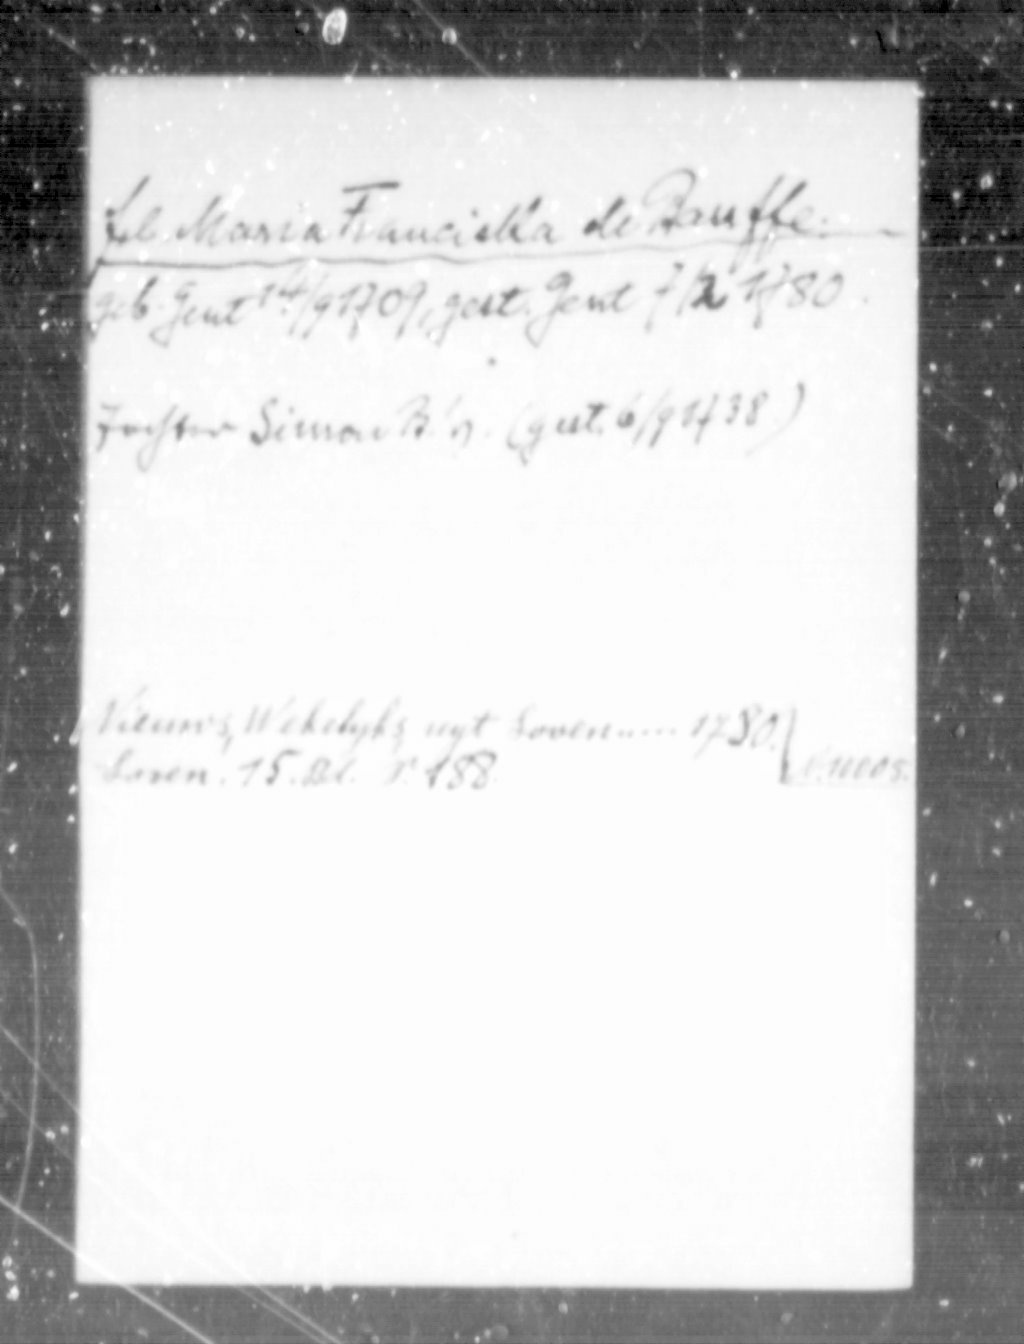 Maria Franciska de Bauffe.
geb. Gent 14/9 1709, gest. Gent 7/2 1780.
Simon B. (gest. 6/9 1738)
Nieuws, Wekelyks uyt Loven ..... 1780.
Loven. 15. Dl. 188.